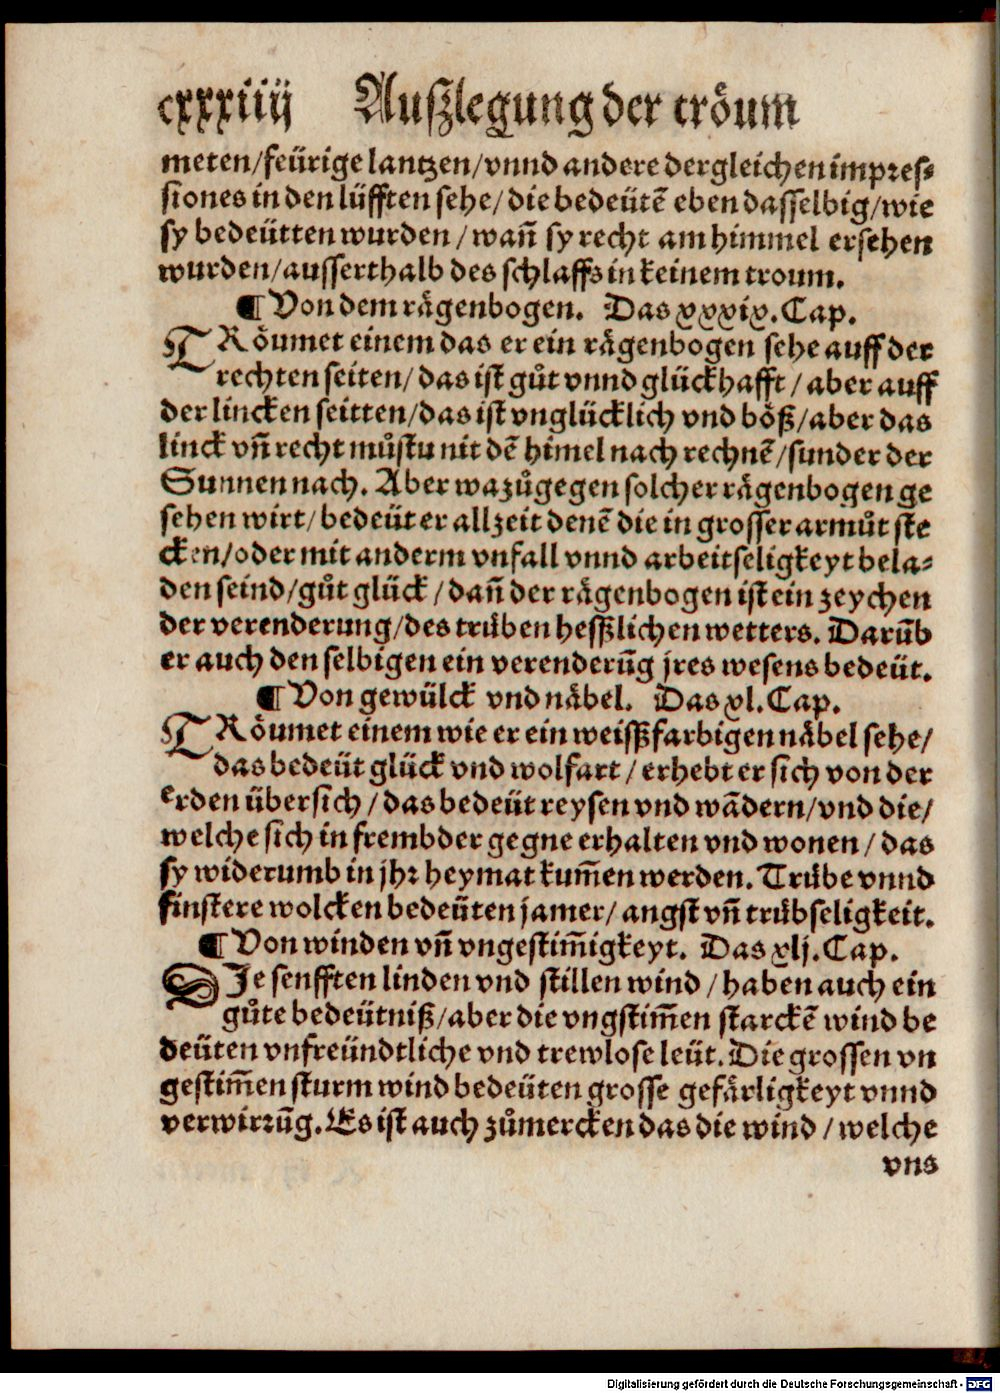 cxxxiiij Auſzlegung der tröum
meten/feürige lantzen/vnnd andere dergleichen impreſ⸗
ſiones in den lüfften ſehe/ die bedeütē eben daſſelbig/wie
ſy bedeütten wurden / wañ ſy recht am himmel erſehen
wurden/auſſerthalb des ſchlaffs in keinem troum.
¶ Von dem rägenbogen. Das xxxix. Cap.
TRöumet einem das er ein rägenbogen ſehe auff der
rechten ſeiten/ das iſt gůt vnnd glückhafft / aber auff
der lincken ſeitten/das iſt vnglücklich vnd böß/aber das
linck vñ recht můſtu nit dē himel nach rechnē/ſunder der
Sunnen nach. Aber wazůgegen ſolcher rägenbogen ge
ſehen wirt/ bedeüt er allzeit denē die in groſſer armůt ſte
cken/oder mit anderm vnfall vnnd arbeitſeligkeyt bela⸗
den ſeind/gůt glück / dañ der rägenbogen iſt ein zeychen
der verenderung/des trüben heſſzlichen wetters. Darūb
er auch den ſelbigen ein verenderūg jres weſens bedeüt.
¶ Von gewülck vnd näbel. Das xl. Cap.
TRöumet einem wie er ein weiſſzfarbigen näbel ſehe/
das bedeüt glück vnd wolfart / erhebt er ſich von der
erden überſich / das bedeüt reyſen vnd wādern/vnd die/
welche ſich in frembder gegne erhalten vnd wonen / das
ſy widerumb in jhr heymat kum̄en werden. Trübe vnnd
finſtere wolcken bedeüten jamer/ angſt vñ trübſeligkeit.
¶ Von winden vñ vngeſtim̄igkeyt. Das xlj. Cap.
DJe ſenfften linden vnd ſtillen wind / haben auch ein
gůte bedeütniß/aber die vngſtim̄en ſtarckē wind be
deüten vnfreündtliche vnd trewloſe leüt. Die groſſen vn
geſtim̄en ſturm wind bedeüten groſſe gefärligkeyt vnnd
verwirrūg. Es iſt auch zůmercken das die wind / welche
vns
Digitalisierung gefördert durch die Deutsche Forschungsgemeinschaft - DFG